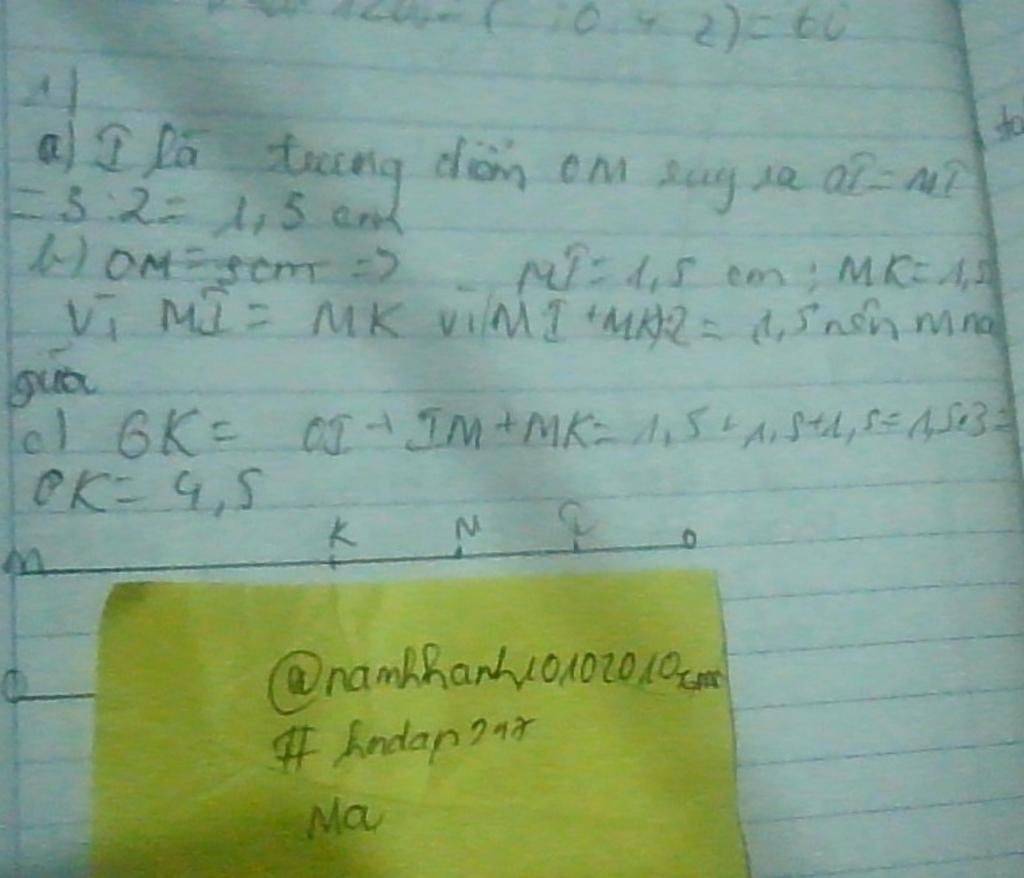 120 - ( 10 + 2) = 60
1)
a) I là trung điểm OM suy ra OI = MI
= 3 : 2 = 1,5 cm
b) OM = 3cm => MI = 1,5 cm ; MK = 1,5
Vì MI = MK vì (MI + MK):2 = 1,5 nên M nằ
giữa
c) OK = OI + IM + MK = 1,5 + 1,5 + 1,5 = 1,5.3 =
OK = 4,5
K M I O
m
O
@namkhanh10102010
# hoidap247
Ma